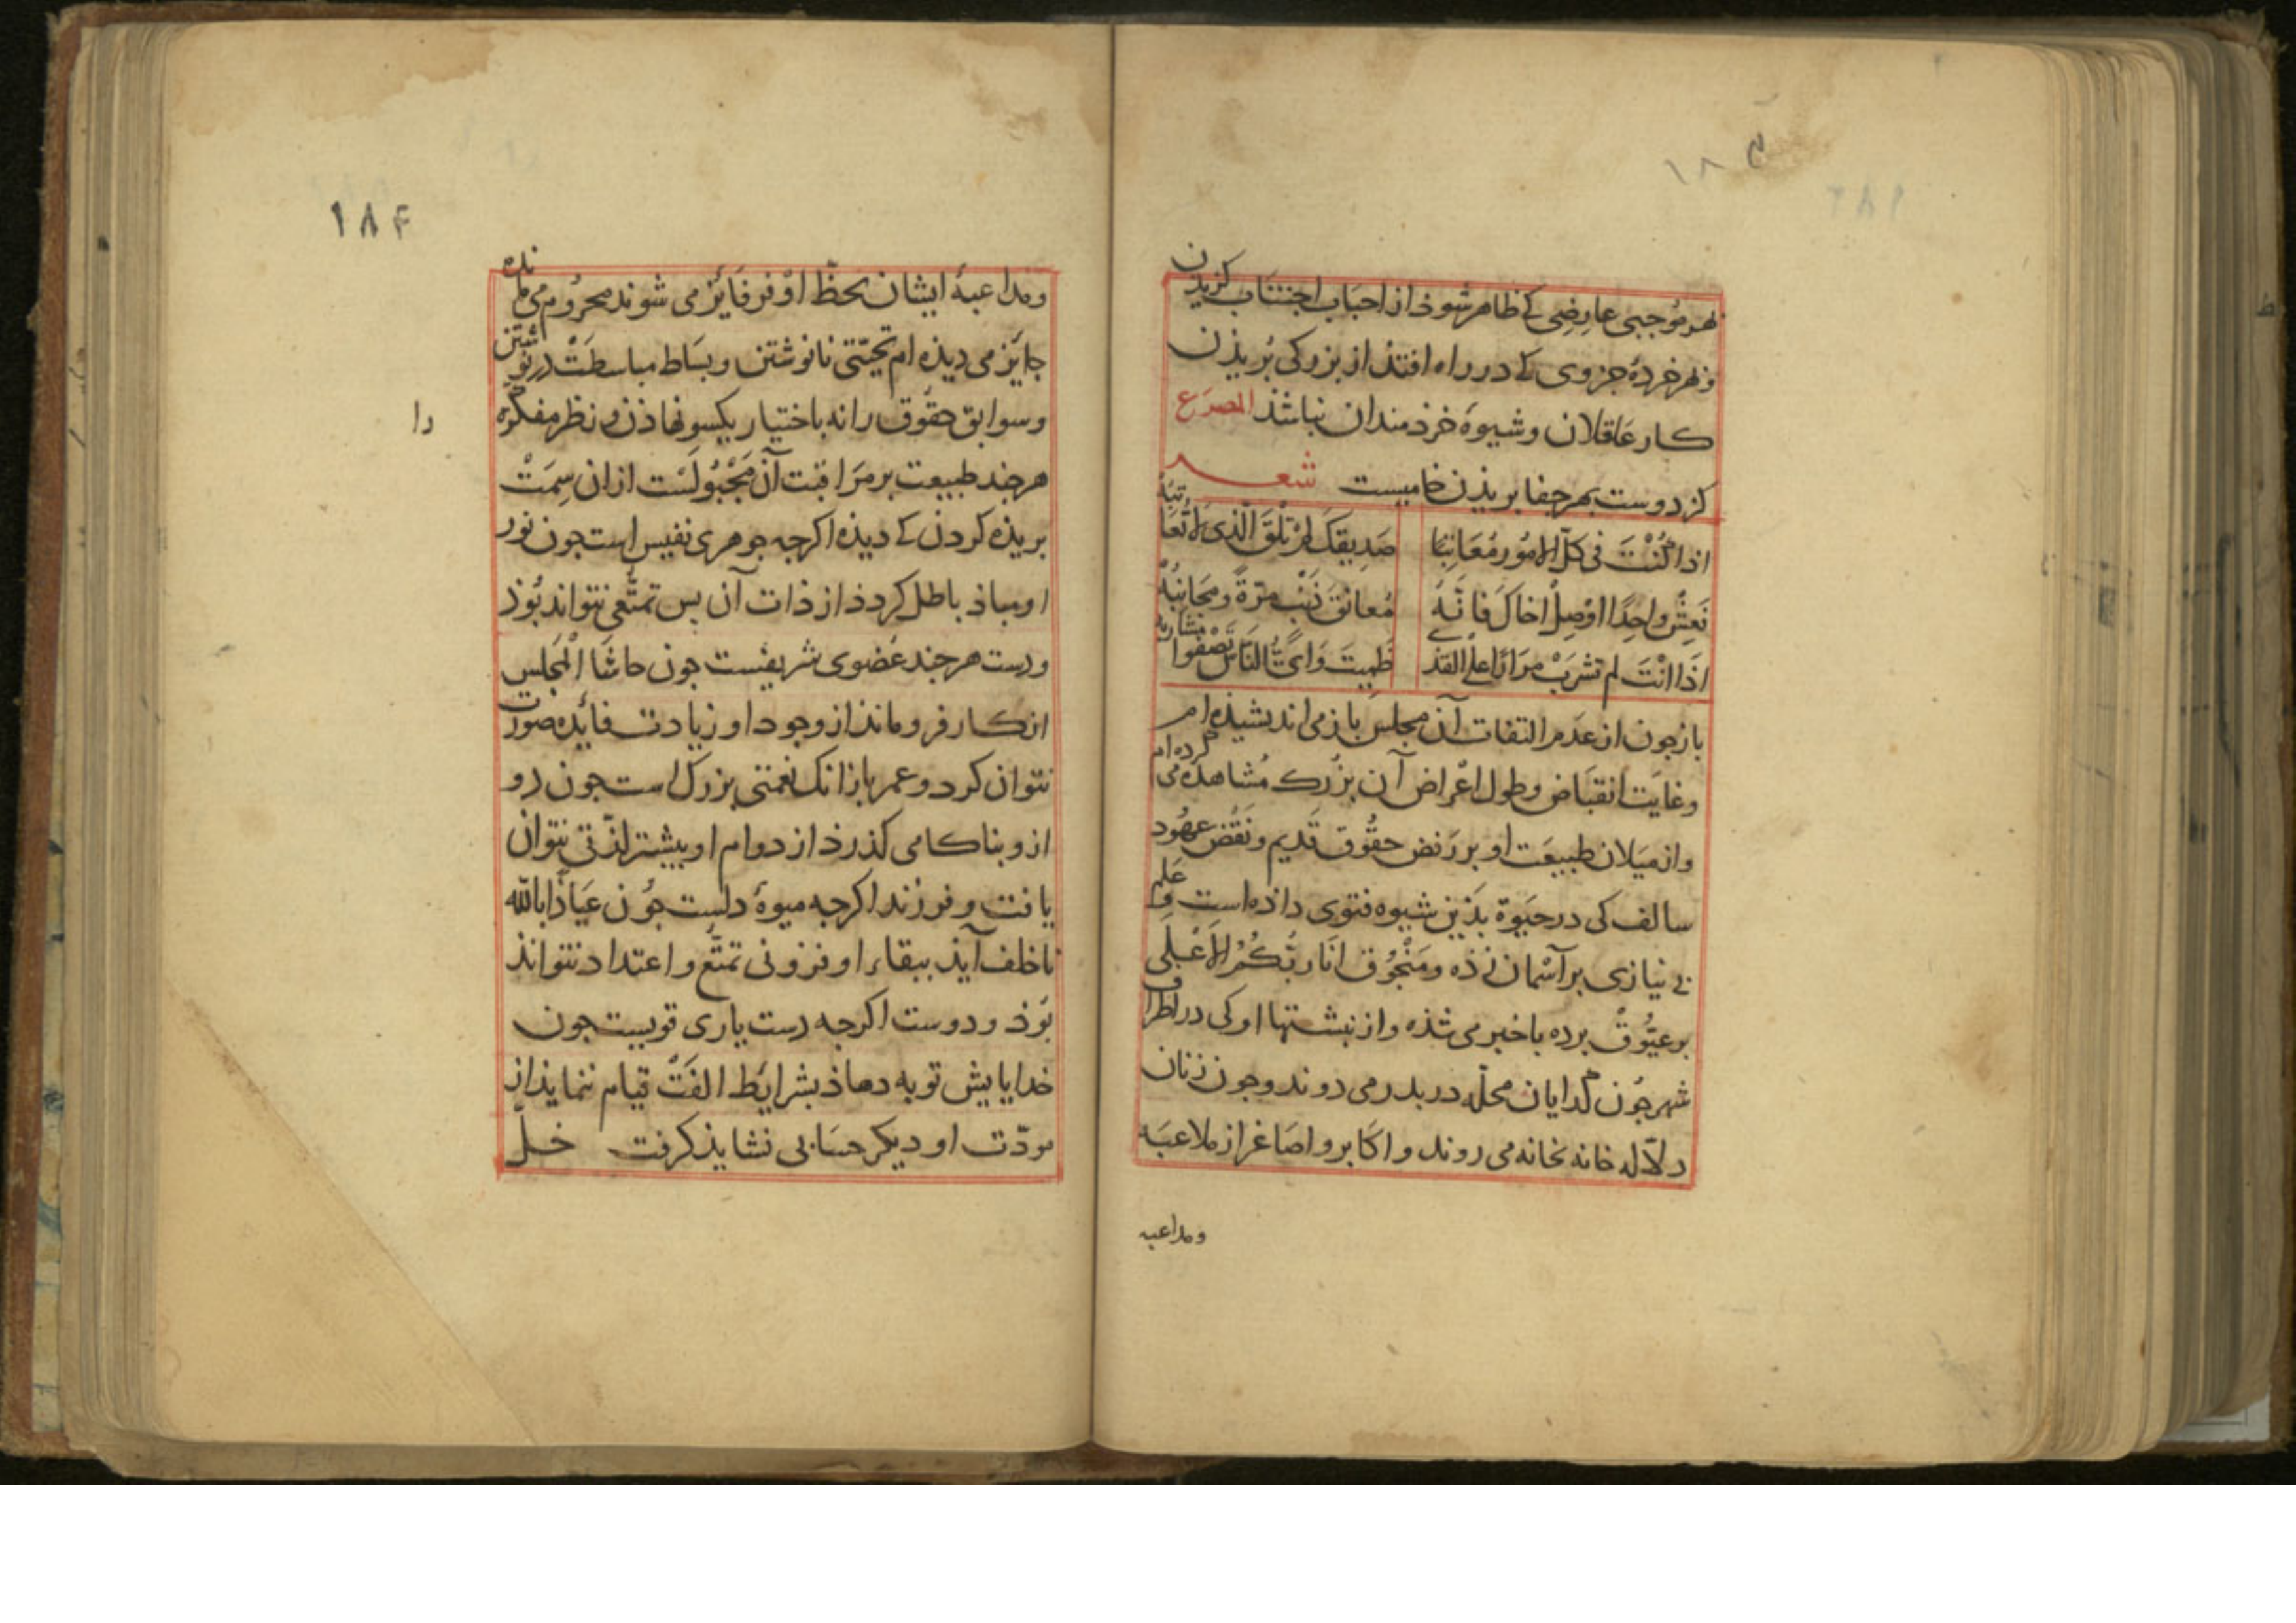 ۱۸۳
بهر موجبی عارضی کے ظاهر شوذ از احباب اجتناب کزیدن
وبهر خردۀ جزوی کے در راه افتذ از بزرکی بُریذن
کار عاقلان وشیوۀ خرذمندان نباشذ المصرع
کز دوست بهر جفا بریذن خامیست شعر
اذا كُنْتَ فى كلّ الامُور مُعَاتِبًا صَدِيقَكَ لم تَلْقَ الّذى لا تُعَاتبُهْ
فَعِشْ واحِدًا اوْصِلْ اخاكَ فانّهُ مُعانقُ ذَنْب مرّةً ومجَانِبُهْ
اذَا انْتَ لم تشرَبْ مرَارًا على القذى ظَمِيتَ وَاىُّ النّاس تَصْفُوا مشاربه
باز چون از عدَم التفات آن مجلس باز می اندیشیذه ام
وغایَت انقبَاض وطول اعْراض آن بزُرک مُشاهذه می کرده ام
واز میَلان طبیعَت او بر رَفض حقُوق قَدیم ونَقْض عهُود
سالف کی در حیَوة بذین شیوه فتوی داذه است وعَلم
بی نیازی بر آسْمان زذه ومَنْجُوق انَا ربُّكُمُ الاَعْلى
بر عیُّوقْ برده باخبر می شذه واز نبشتها او کی در اطراف
شهر چُون کدایان محلّه دربدر می دوند وچون زنان
دلّاله خانه بخانه می روند واکابر واصَاغر از ملاعبَه
ومداعبه
۱۸۴
ومداعبۀ ایشان بحظّ اوْفر فَایز می شوند محرُوم می مانده
جایَز می دیذه ام تحیّتی نانوشتن وبسَاط مباسطَتْ درنوشتن
وسوابق حقُوق را نه باختیار یکسو نهاذن ونظر مفکّره
را
هر چند طبیعت بر مرَاقبَت آن مَجْبُولسْت از ان سِمَتْ
بریذه کردن کے دیذه اکرچه جوهری نفیس است چون نور
او مباذ باطل کردذ از ذات آن بس تمتّعی نتواند بُوذ
ودست هر چند عضوی شریفست چون حاشَا الْمجلس
از کار فرو مانذ از وجود او زیادت فایٔده صورت
نتوان کرد وعمر باز انک نعمتی بزرک است چون دو
از و بناکامی کذرذ از دوام او بیشتر لذّتی نتوان
یافت وفرزند اکرچه میوۀ دلست چُون عیَاذًا بالله
ناخلف آیذ ببقاء او فزونی تمتّع واعتداد نتوانذ
بُوذ ودوست اکرچه دست یاری قویست چون
خدایا پیش تو به دهاذ بشرایٔط الفَتْ قیام ننمایذ از
مودّت او دیکر حسَابی نشایذ کرفت خلّ